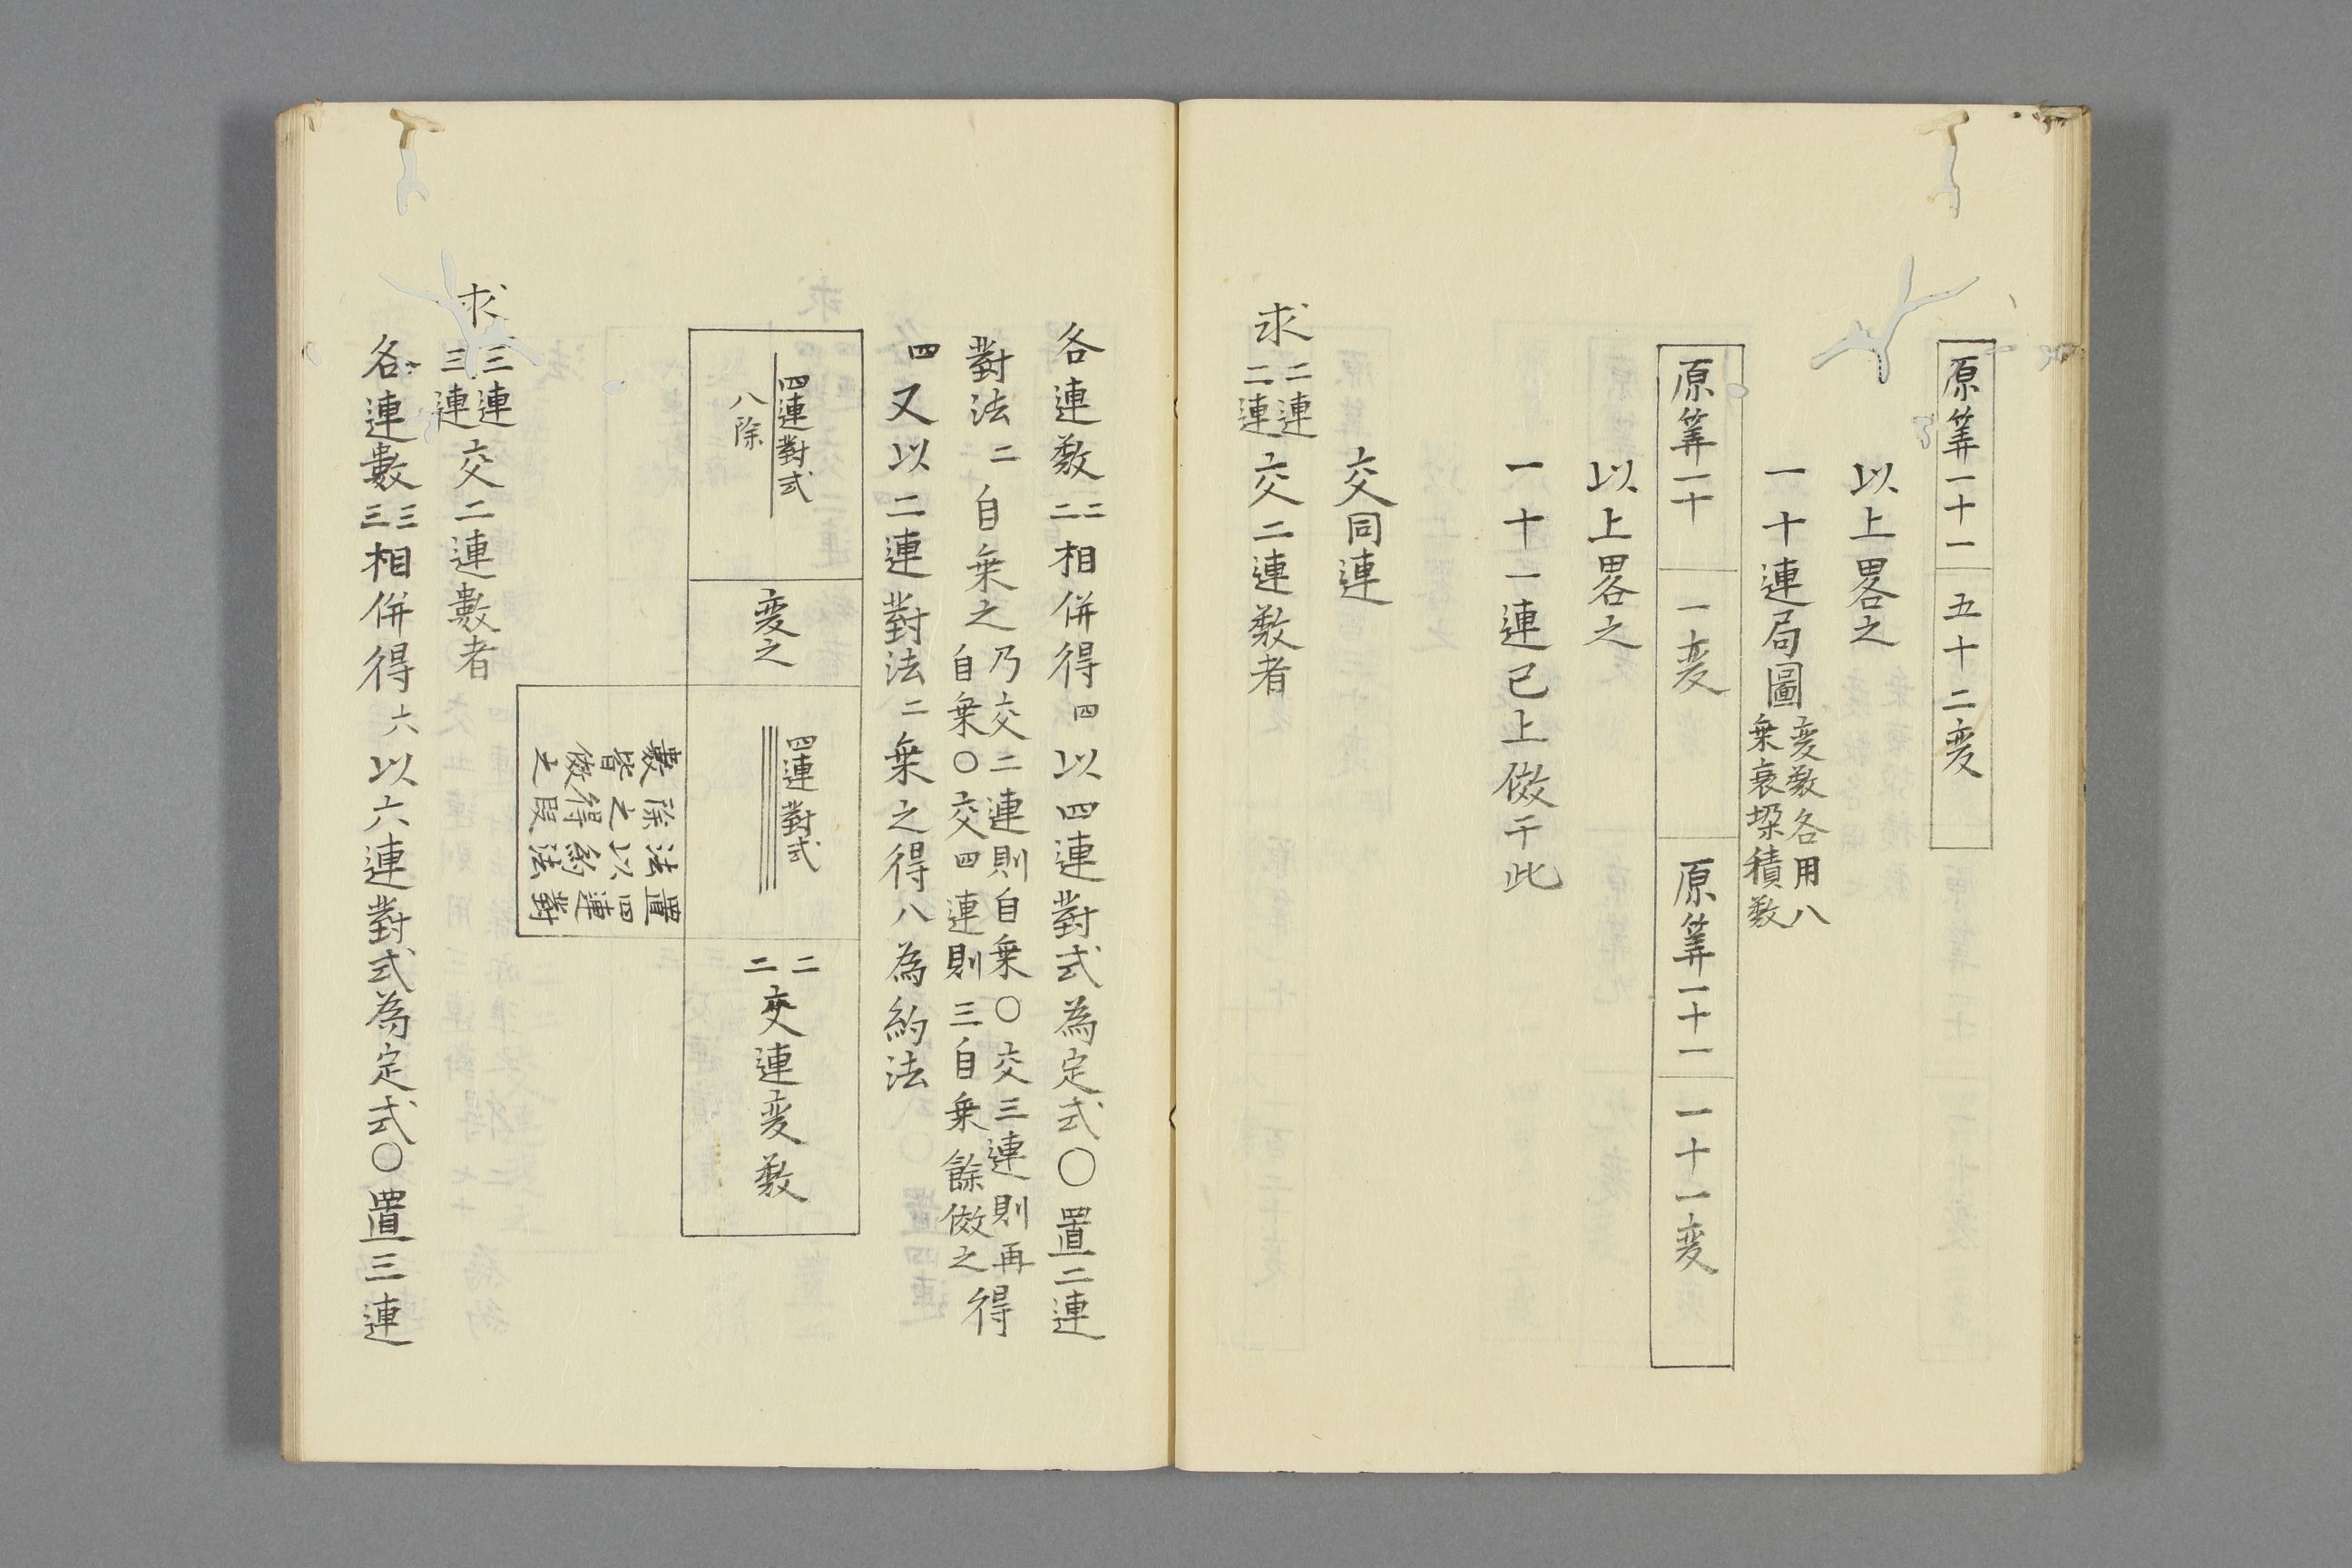 原筭一十一 五十二变
以上畧之
一十連局圖 变数各用八
乗衰垜積数
原筭一十 一变 原筭一十一 一十一变
以上畧之
一十一連已上倣于此
交同連
求二連二連交二連数者
各連数二二相併得四以四連對式為定式〇置二連
對法二自乗之 乃交二連則自乗〇交三連則再
自乗〇交四連則三自乗餘倣之 得
四又以二連對法二乗之得八為約法
四連對式
八除
变之
四連對式
二二交連变数
置四連對
法以約法
除之得段
數皆倣之
求三連三連交二連數者
各連數三三相併得六以六連對式為定式〇置三連